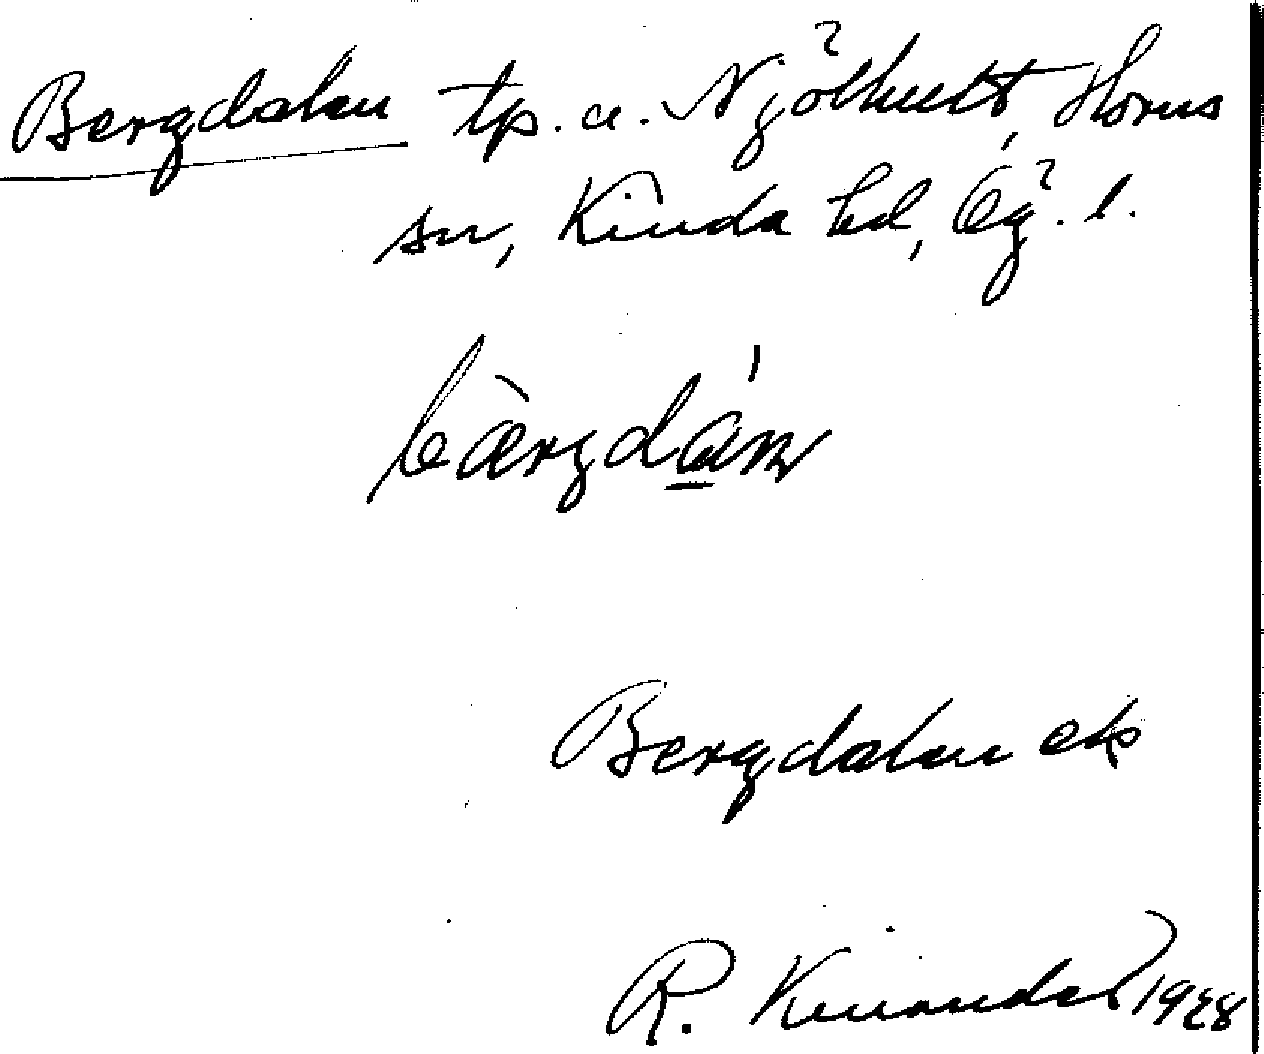 Bergdalen tp. u. Njölhult, Horns
sn, Kinda hd, Ög. l.
bàrgdán
Bergdalen ek
R. Kinander 1928